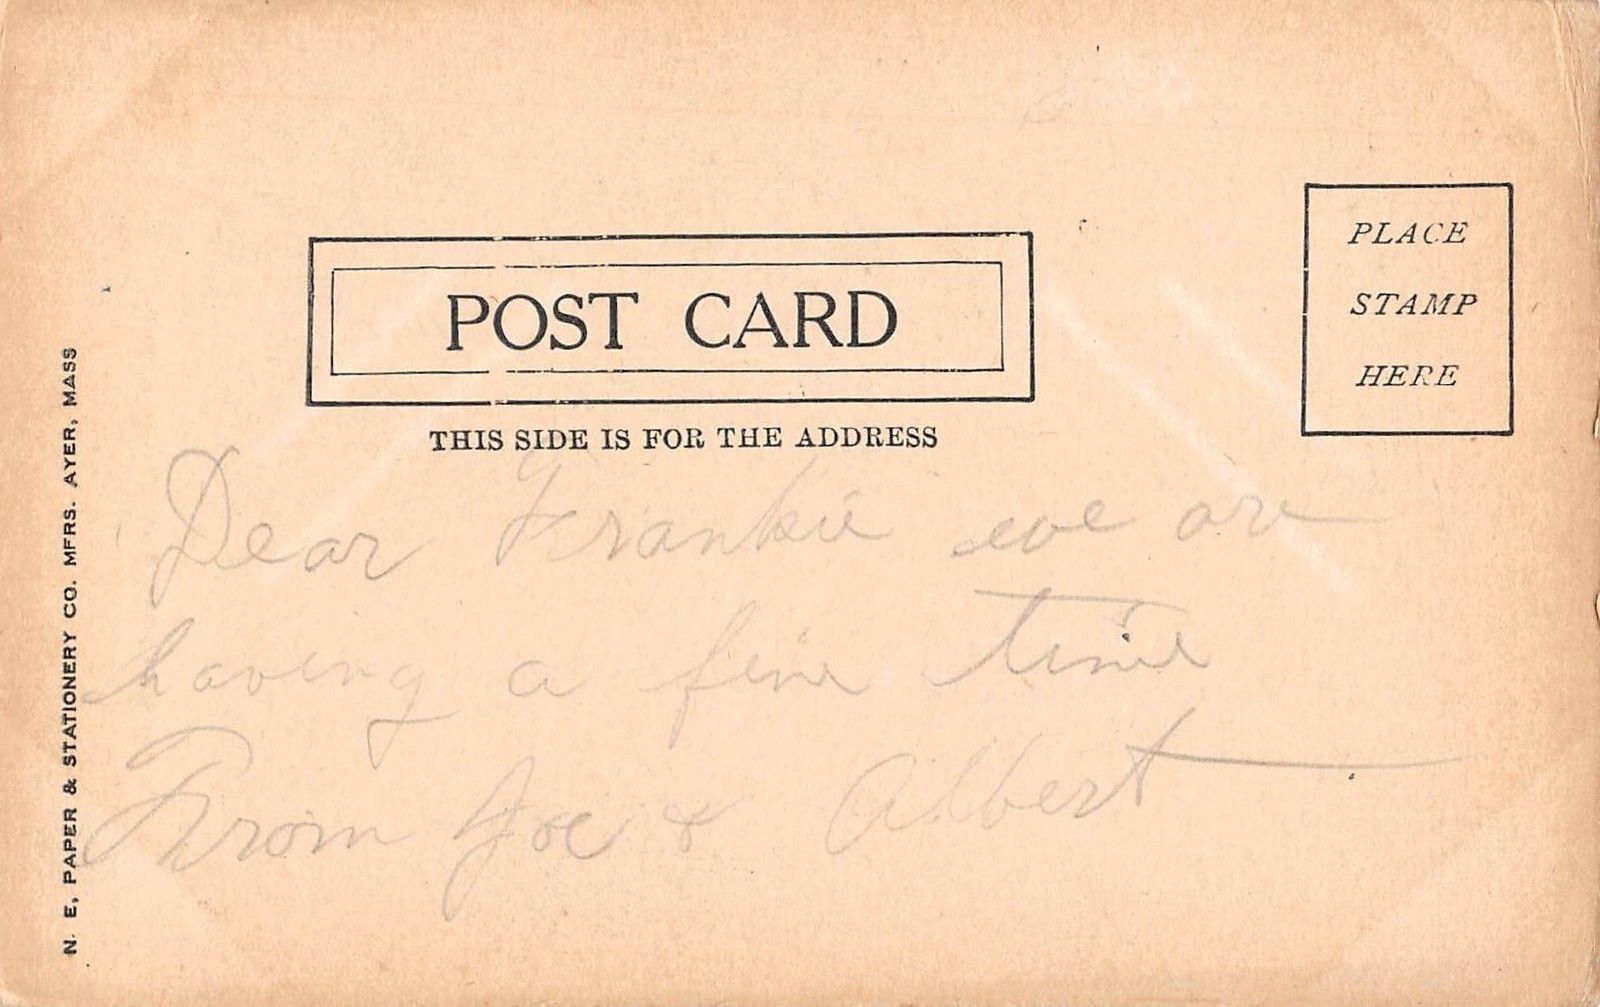 POST CARD
THIS SIDE IS FOR THE ADDRESS
PLACE
STAMP
HERE
Dear Frankie we are
having a fine time
From Joe & Albert
N. E, PAPER & STATIONERY CO. MFRS. AYER, MASS